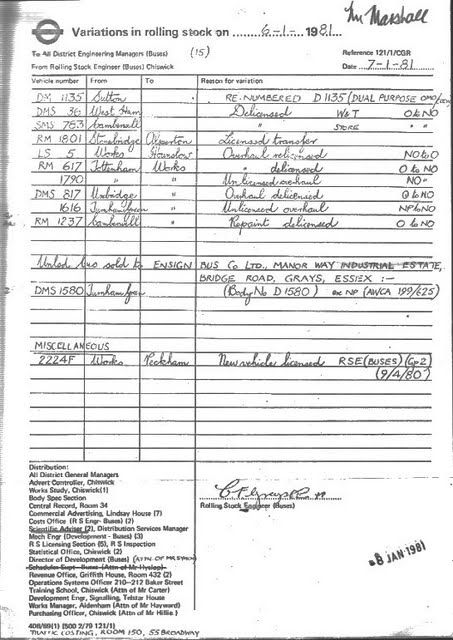 Mr Marshall
Variations in rolling stock on 6-1-1981.
To All District Engineering Managers (Buses) (15) Reference 121/1/CGR
From Rolling Stock Engineer (Buses) Chiswick Date 7-1-81
Vehicle number From To Reason for variation
DM 1135 Sutton RE-NUMBERED D 1135 (DUAL PURPOSE OMO/
DMS 36 West Ham Delicensed W&T O to NO
SMS 763 Camberwell " STORE " "
RM 1801 Stonebridge Alperton Licensed transfer
LS 5 Works Hounslow Overhaul relicensed NO to O
RM 617 Tottenham Works " delicensed O to NO
1790 " " Unlicensed overhaul NO"
DMS 817 Uxbridge " Overhaul delicensed O to NO
1616 Turnham Green " Unlicensed overhaul NP to NO
RM 1237 Camberwell " Repaint delicensed O to NO
Unlcd bus sold to ENSIGN BUS CO LTD., MANOR WAY INDUSTRIAL ESTATE,
BRIDGE ROAD, GRAYS, ESSEX :-
DMS 1580 Turnham Green (Body No D 1580) ex NP (AWCA 199/625)
MISCELLANEOUS
2224F Works Peckham New vehicle licensed RSE (BUSES) (Gp 2)
(9/4/80)
Distribution:
All District General Managers
Advert Controller, Chiswick
Works Study, Chiswick(1)
Body Spec Section
Central Record, Room 34
Commercial Advertising, Lindsay House (7)
Costs Office (R S Engr- Buses) (2)
Scientific Adviser (2), Distribution Services Manager
Mech Engr (Development - Buses) (3)
R S Licensing Section (5), R S Inspection
Statistical Office, Chiswick (2)
Director of Development (Buses) (ATTN OF
Schedules Supt - Buses (Attn of Mr Hyslop)
Revenue Office, Griffith House, Room 432 (2)
Operations Systems Officer 210-212 Baker Street
Training School, Chiswick (Attn of Mr Carter)
Development Engr, Signalling, Telstar House
Works Manager, Aldenham (Attn of Mr Hayward)
Purchasing Officer, Chiswick (Attn of Mr Hillie )
408/69(1) (500 2/79 121/1)
TRAFFIC COSTING, ROOM 150, 55 BROADWAY
Rolling Stock Engineer (Buses)
8 JAN 1981